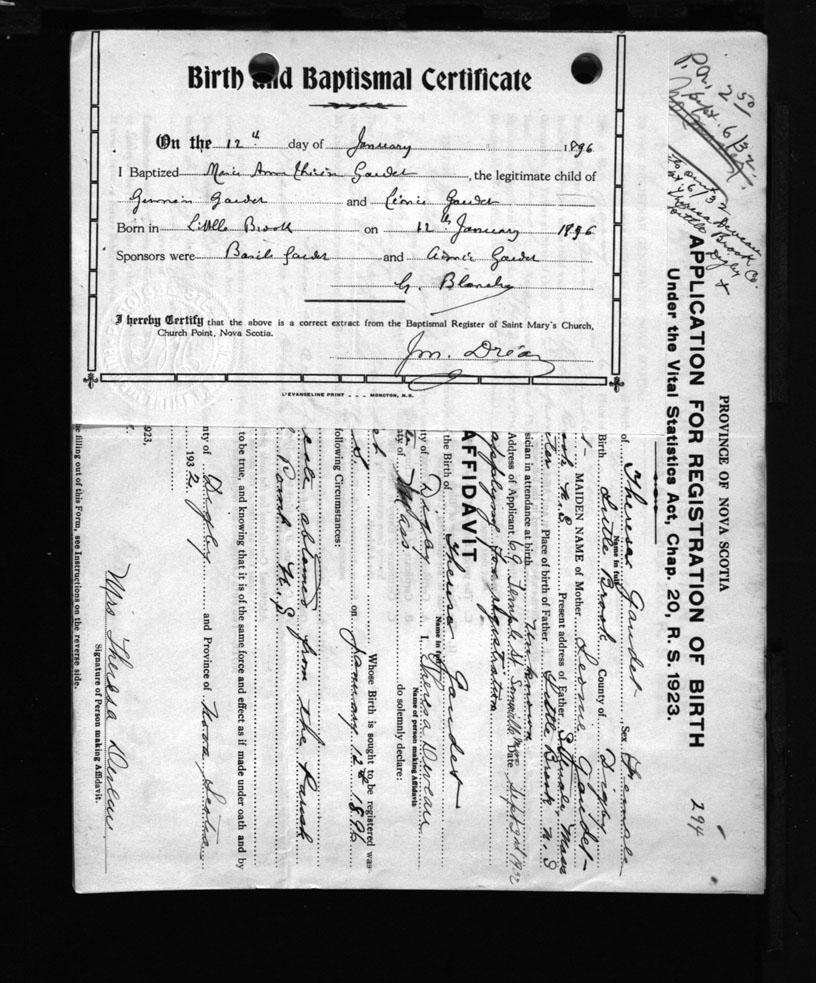 Birth and Baptismal Certificate
On the 12th day of January 1896
I Baptized Marie Ann Gaudet, the legitimate child of
Germain Gaudet and Léonie Gaudet
Born in Little Brook on 12th January 1896
Sponsors were Basile Gaudet and Gaudet
I hereby Certify that the above is a correct extract from the Baptismal Register of Saint Mary's Church,
Church Point, Nova Scotia.
L'EVANGELINE PRINT - - - MONCTON, N.B.
2 50
Sept. 6/32
Theresa Deveau
Little Brook
Digby Co.
PROVINCE OF NOVA SCOTIA
294
APPLICATION FOR REGISTRATION OF BIRTH
Under the Vital Statistics Act, Chap. 20, R. S. 1923.
of Theresa Gaudet Sex Female
Name in full
Birth Little Brook County of Digby
MAIDEN NAME of Mother Leonie Gaudet
N.S Present address of Father Mass
Place of birth of Father Little Brook N.S
sician in attendance at birth Unknown
Address of Applicant 69 Temple St Somerville Mass Date Sept 3rd 1932
applying for registration
AFFIDAVIT
the Birth of Theresa Gaudet
Name in full
ty of Digby I, Theresa Deveau
Name of person making Affidavit
ty of Mass do solemnly declare:
Whose Birth is sought to be registered was
on January 12th 1896
following Circumstances:
obtained from the Parish
Point N.S
to be true, and knowing that it is of the same force and effect as if made under oath and by
1923,
nty of Digby and Province of Nova Scotia
1932
Mrs Theresa Deveau
Signature of Person making Affidavit.
e filling out of this Form, see Instructions on the reverse side.